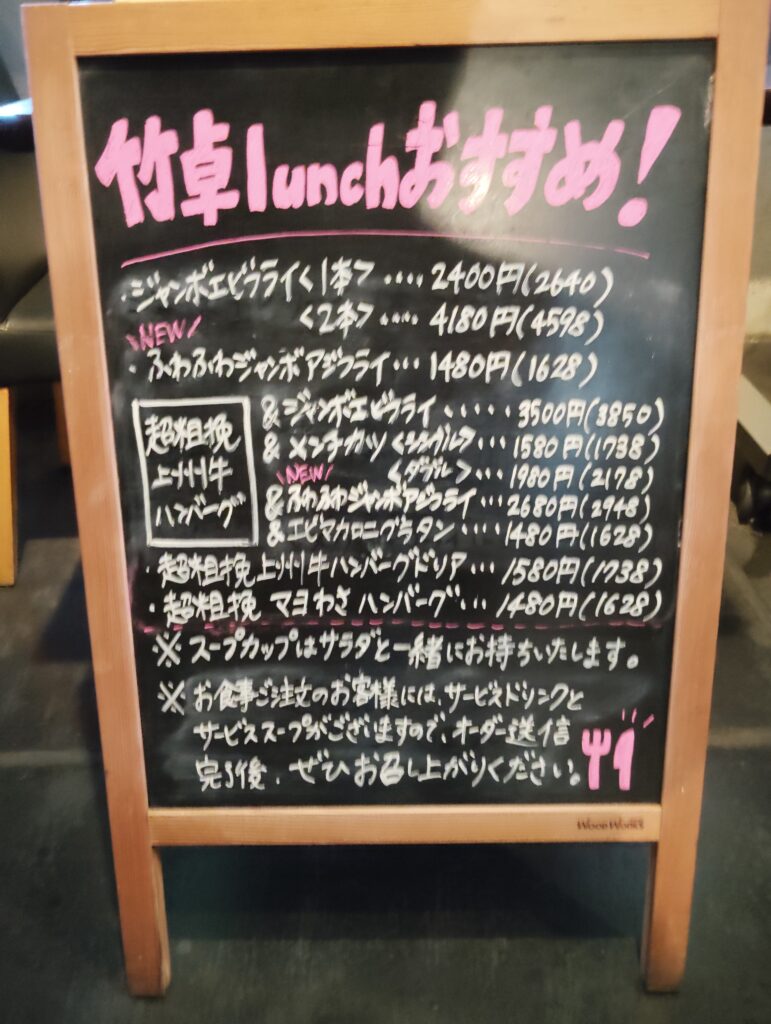 竹卓lunchおすすめ!
・ジャンボエビフライ<1本>‥‥2400円(2640)
<2本>‥‥4180円(4598)
\NEW/
・ふわふわジャンボアジフライ…1480円(1628)
超粗挽
上州牛
ハンバーグ
&ジャンボエビフライ‥‥‥3500円(3850)
&メンチカツ<シングル>…1580円(1738)
<ダブル>…1980円(2178)
\NEW/
&ふわふわジャンボアジフライ…2680円(2948)
&エビマカロニグラタン‥‥1480円(1628)
・超粗挽上州牛ハンバーグドリア…1580円(1738)
・超粗挽 マヨわさ ハンバーグ…1480円(1628)
※スープカップはサラダと一緒にお持ちいたします。
※お食事ご注文のお客様には、サービスドリンクと
サービススープがございますので、オーダー送信
完了後、ぜひお召し上がりください。
Wood Works